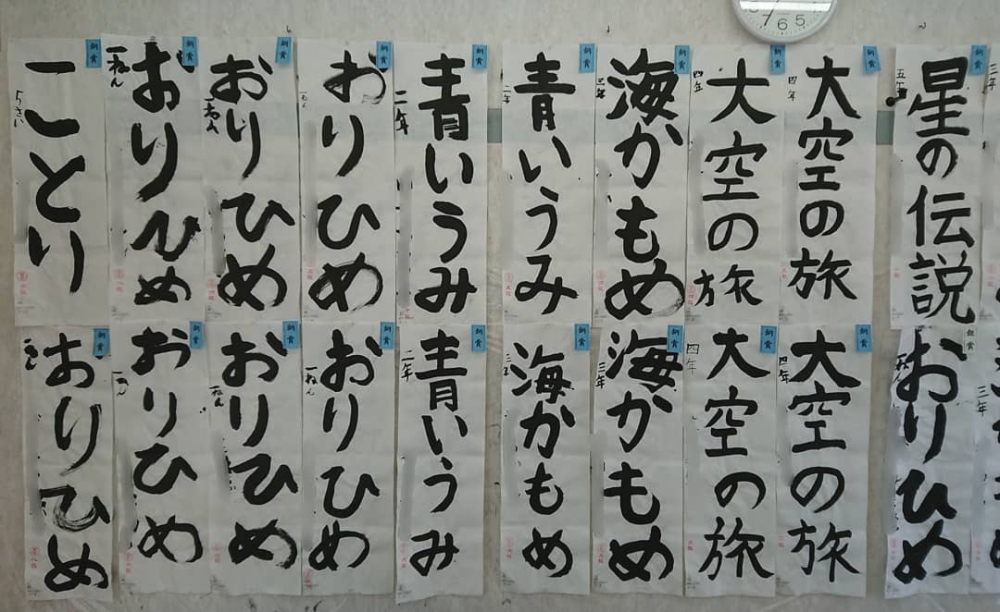 7 6 5
銅賞
ことり
5さい
銅賞
おりひめ
一ねん
銅賞
おりひめ
一ねん
銅賞
おりひめ
銅賞
青いうみ
二年
銅賞
青いうみ
二年
銅賞
海かもめ
三年
銅賞
大空の旅
四年
銅賞
大空の旅
四年
銅賞
星の伝説
五年
銅賞
おりひめ
銅賞
おりひめ
銅賞
おりひめ
一ねん
銅賞
おりひめ
一ねん
銅賞
青いうみ
二年
銅賞
海かもめ
三年
銅賞
海かもめ
三年
銅賞
大空の旅
四年
銅賞
大空の旅
四年
銅賞
おりひめ
三年